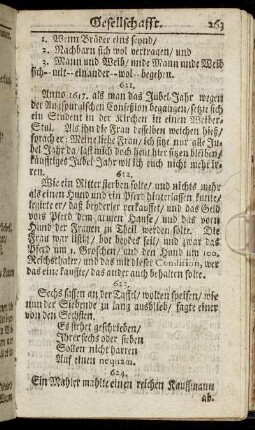 Gesellschafft. 263
1. Wenn Brüder eins seynd/
2. Nachbarn sich wol vertragen/ und
3. Mann und Weib/ unde Mann unde Weib
sich--mit--einander--wol--begehen.
621.
Anno 1617. als man das Jubel-Jahr wegen
der Augspurgischen Confession begangen/ setzte sich
ein Student in der Kirchen in einen Weiber-
Stul. Als ihn die Frau desselben weichen hieß/
sprach er: Meine liebe Frau/ ich sitze nur alle Ju-
bel Jahr da/ last mich doch heint hier sitzen bleiben/
künfftiges Jubel Jahr wil ich euch nicht mehr ir-
ren.
622.
Wie ein Ritter sterben solte/ und nichts mehr
als einen Hund und ein Pferd hinterlassen kunte/
legirte er/ daß beyderley verkaufft/ und das Geld
vors Pferd dem armen Hause/ und das vorn
Hund der Frauen zu Theil werden solte. Die
Frau war listig/ bot beydes feil/ und zwar das
Pferd um 1. Groschen/ und den Hund um 100.
Reichsthaler/ und das mit dieser Condition, wer
das eine kauffte/ das ander auch behalten solte.
623.
Sechs sassen an der Taffel/ wolten speisen/ wie
nun der Siebende zu lang ausblieb/ sagte einer
von den Sechsten.
Es stehet geschrieben/
Ihrer sechs oder sieben
Sollen nicht harren
Auf einen nequam.
624.
Ein Mahler mahlte einen reichen Kauffmann
ab.